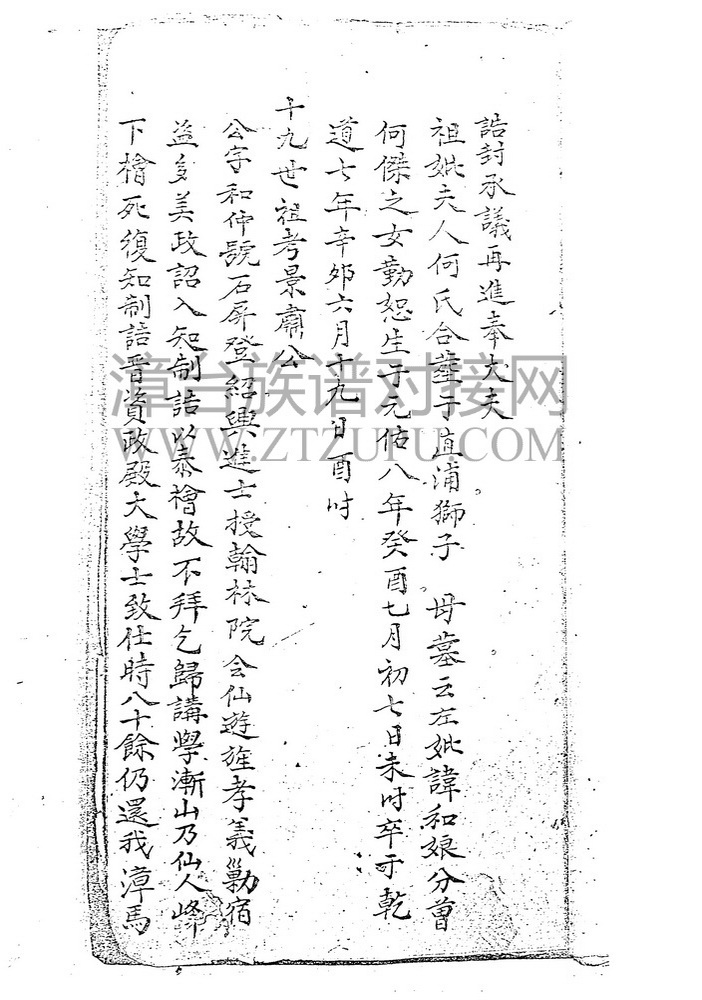 誥封承議再進奉大夫
祖妣夫人何氏合葬于直浦獅子。母墓云左妣諱和娘分曾
何傑之女勤恕生于元佑八年癸酉七月初七日未时卒于乾
道七年辛卯六月十九日酉时
十九世祖考景肅公
公字和仲號石屏登紹興進士授翰林院会仙遊旌孝義勦宿
益多美政詔入知制誥以秦檜故不拜乞歸講學漸山乃仙人峰
下檜死復知制誥晋資政殿大學士致仕時八十餘仍還我漳馬
漳台族谱对接网
WWW.ZTZUPU.COM